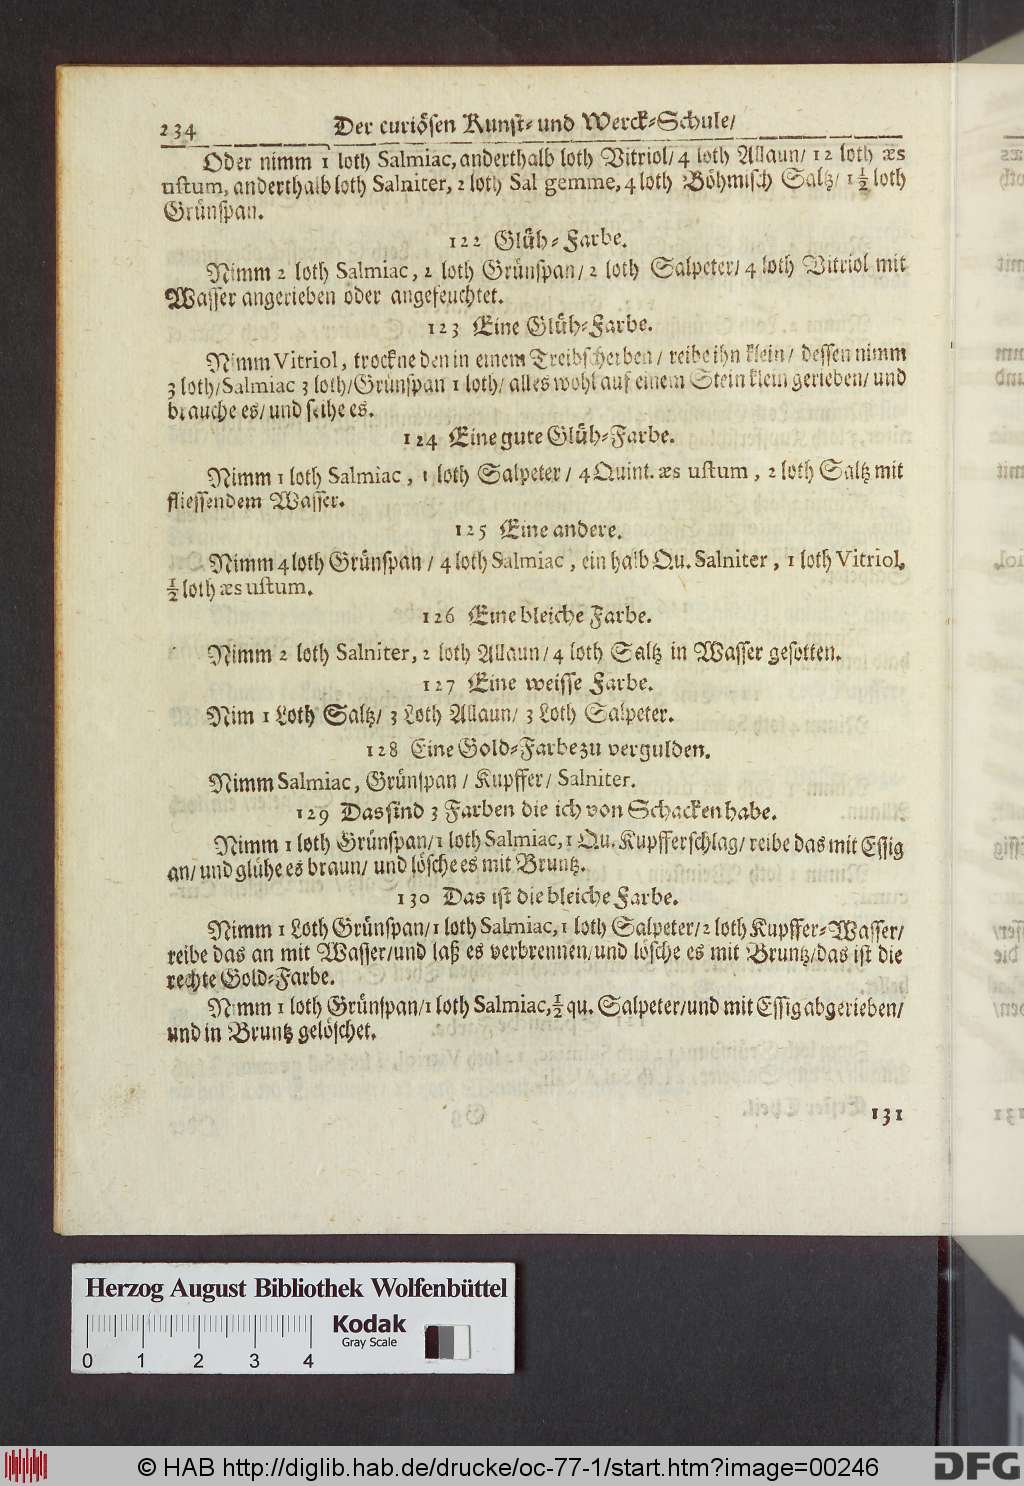 234 Der curiösen Kunst- und Werck-Schule/
Oder nimm 1 loth Salmiac, anderthalb loth Vitriol/ 4 loth Allaun/ 12 loth æs
ustum, anderthalb loth Salniter, 2 loth Sal gemme, 4 loth Böhmisch Saltz/ 1 1/2 loth
Grünspan.
122 Glüh-Farbe.
Nimm 2 loth Salmiac, 2 loth Grünspan/ 2 loth Salpeter/ 4 loth Vitriol mit
Wasser angerieben oder angefeuchtet.
123 Eine Glüh-Farbe.
Nimm Vitriol, trockne den in einem Treibscherben/ reibe ihn klein/ dessen nimm
3 loth/ Salmiac 3 loth/ Grünspan 1 loth/ alles wohl auf einem Stein klein gerieben/ und
brauche es/ und seihe es.
124 Eine gute Glüh-Farbe.
Nimm 1 loth Salmiac, 1 loth Salpeter/ 4 Quint. æs ustum, 2 loth Saltz mit
fliessendem Wasser.
125 Eine andere.
Nimm 4 loth Grünspan/ 4 loth Salmiac, ein halb Qu. Salniter, 1 loth Vitriol,
1/2 loth æs ustum.
126 Eine bleiche Farbe.
Nimm 2 loth Salniter, 2 loth Allaun/ 4 loth Saltz in Wasser gesotten.
127 Eine weisse Farbe.
Nim 1 Loth Saltz/ 3 Loth Allaun/ 3 Loth Salpeter.
128 Eine Gold-Farbe zu vergulden.
Nimm Salmiac, Grünspan/ Kupffer/ Salniter.
129 Das sind 3 Farben die ich von Schacken habe.
Nimm 1 loth Grünspan/ 1 loth Salmiac, 1 Qu. Kupfferschlag/ reibe das mit Essig
an/ und glühe es braun/ und lösche es mit Bruntz.
130 Das ist die bleiche Farbe.
Nimm 1 Loth Grünspan/ 1 loth Salmiac, 1 loth Salpeter/ 2 loth Kupffer-Wasser/
reibe das an mit Wasser/ und laß es verbrennen/ und lösche es mit Bruntz/ das ist die
rechte Gold-Farbe.
Nimm 1 loth Grünspan/ 1 loth Salmiac, 1/2 qu. Salpeter/ und mit Essig abgerieben/
und in Bruntz gelöschet.
131
Herzog August Bibliothek Wolfenbüttel
Kodak
Gray Scale
0 1 2 3 4
© HAB http://diglib.hab.de/drucke/oc-77-1/start.htm?image=00246
DFG